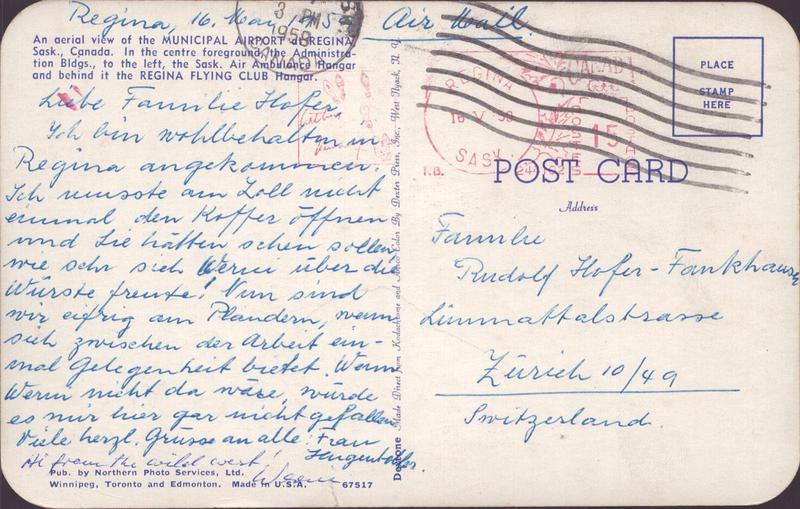 Regina, 16. Mai 1959
Air Mail.
3 PM
1959
An aerial view of the MUNICIPAL AIRPORT of REGINA,
Sask., Canada. In the centre foreground, the Administra-
tion Bldgs., to the left, the Sask. Air Ambulance Hangar
and behind it the REGINA FLYING CLUB Hangar.
Liebe Familie Hofer,
Ich bin wohlbehalten in
Regina angekommen.
Ich musste am Zoll nicht
einmal den Koffer öffnen
und Sie hätten sehen sollen,
wie sehr sich Werni über die
Würste freute! Nun sind
wir eifrig am Plaudern, wenn
sich zwischen der Arbeit ein-
mal Gelegenheit bietet. Wenn
Werni nicht da wäre, würde
es mir hier gar nicht gefallen.
Viele herzl. Grüsse an alle! Frau
Hugentobler
Hi from the wild west!
Werni
Pub. by Northern Photo Services, Ltd.
Winnipeg, Toronto and Edmonton. Made in U.S.A. 67517
Made Direct from Kodachrome and Color By Dexter Press, Inc., West Nyack, N. Y.
REGINA
16 V 59
SASK.
CANADA
15
POSTES
PLACE
STAMP
HERE
POST CARD
Address
Familie
Rudolf Hofer-Fankhauser
Limmattalstrasse
Zürich 10/49
Switzerland.